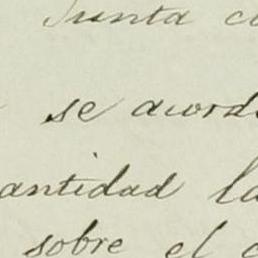 Junta
se acord
antidad la
sobre el